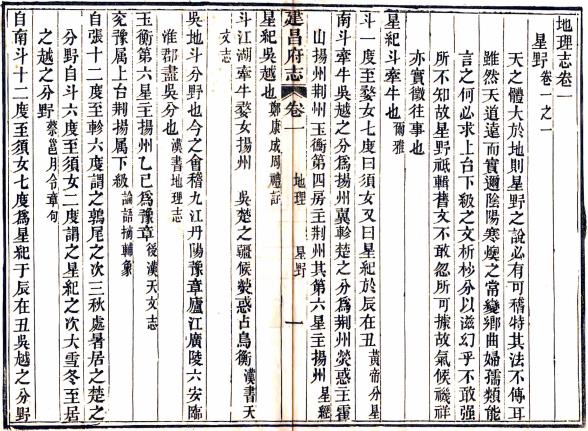 地理志卷一
星野 卷一之一
天之體大於地則星野之說必有可稽特其法不傳耳
雖然天道遠而實邇陰陽寒燠之常變鄉曲婦孺類能
言之何必求上台下級之文析杪分以滋幻乎不敢强
所不知故星野祗輯舊文不敢忽所可據故氣候禨祥
亦實徵往事也
星紀斗牽牛也 爾雅
斗一度至婺女七度曰須女又曰星紀於辰在丑 黃帝分星
南斗牽牛吳越之分爲揚州翼軫楚之分爲荆州熒惑主霍
山揚州荆州玉衡第四房主荆州其第六星主揚州 星經
建昌府志 卷一 地理 星野 一
星紀吳越也 鄭康成周禮註
斗江湖牽牛婺女揚州 吳楚之疆候熒惑占鳥衡 漢書天
文志
吳地斗分野也今之會稽九江丹陽豫章廬江廣陵六安臨
淮郡盡吳分也 漢書地理志
玉衡第六星主揚州乙巳爲豫章 後漢天文志
兖豫屬上台荆揚屬下級 論語摘輔象
自張十二度至軫六度謂之鶉尾之次三秋處暑居之楚之
分野自斗六度至須女二度謂之星紀之次大雪冬至居
之越之分野 蔡邕月令章句
自南斗十二度至須女七度爲星紀于辰在丑吳越之分野